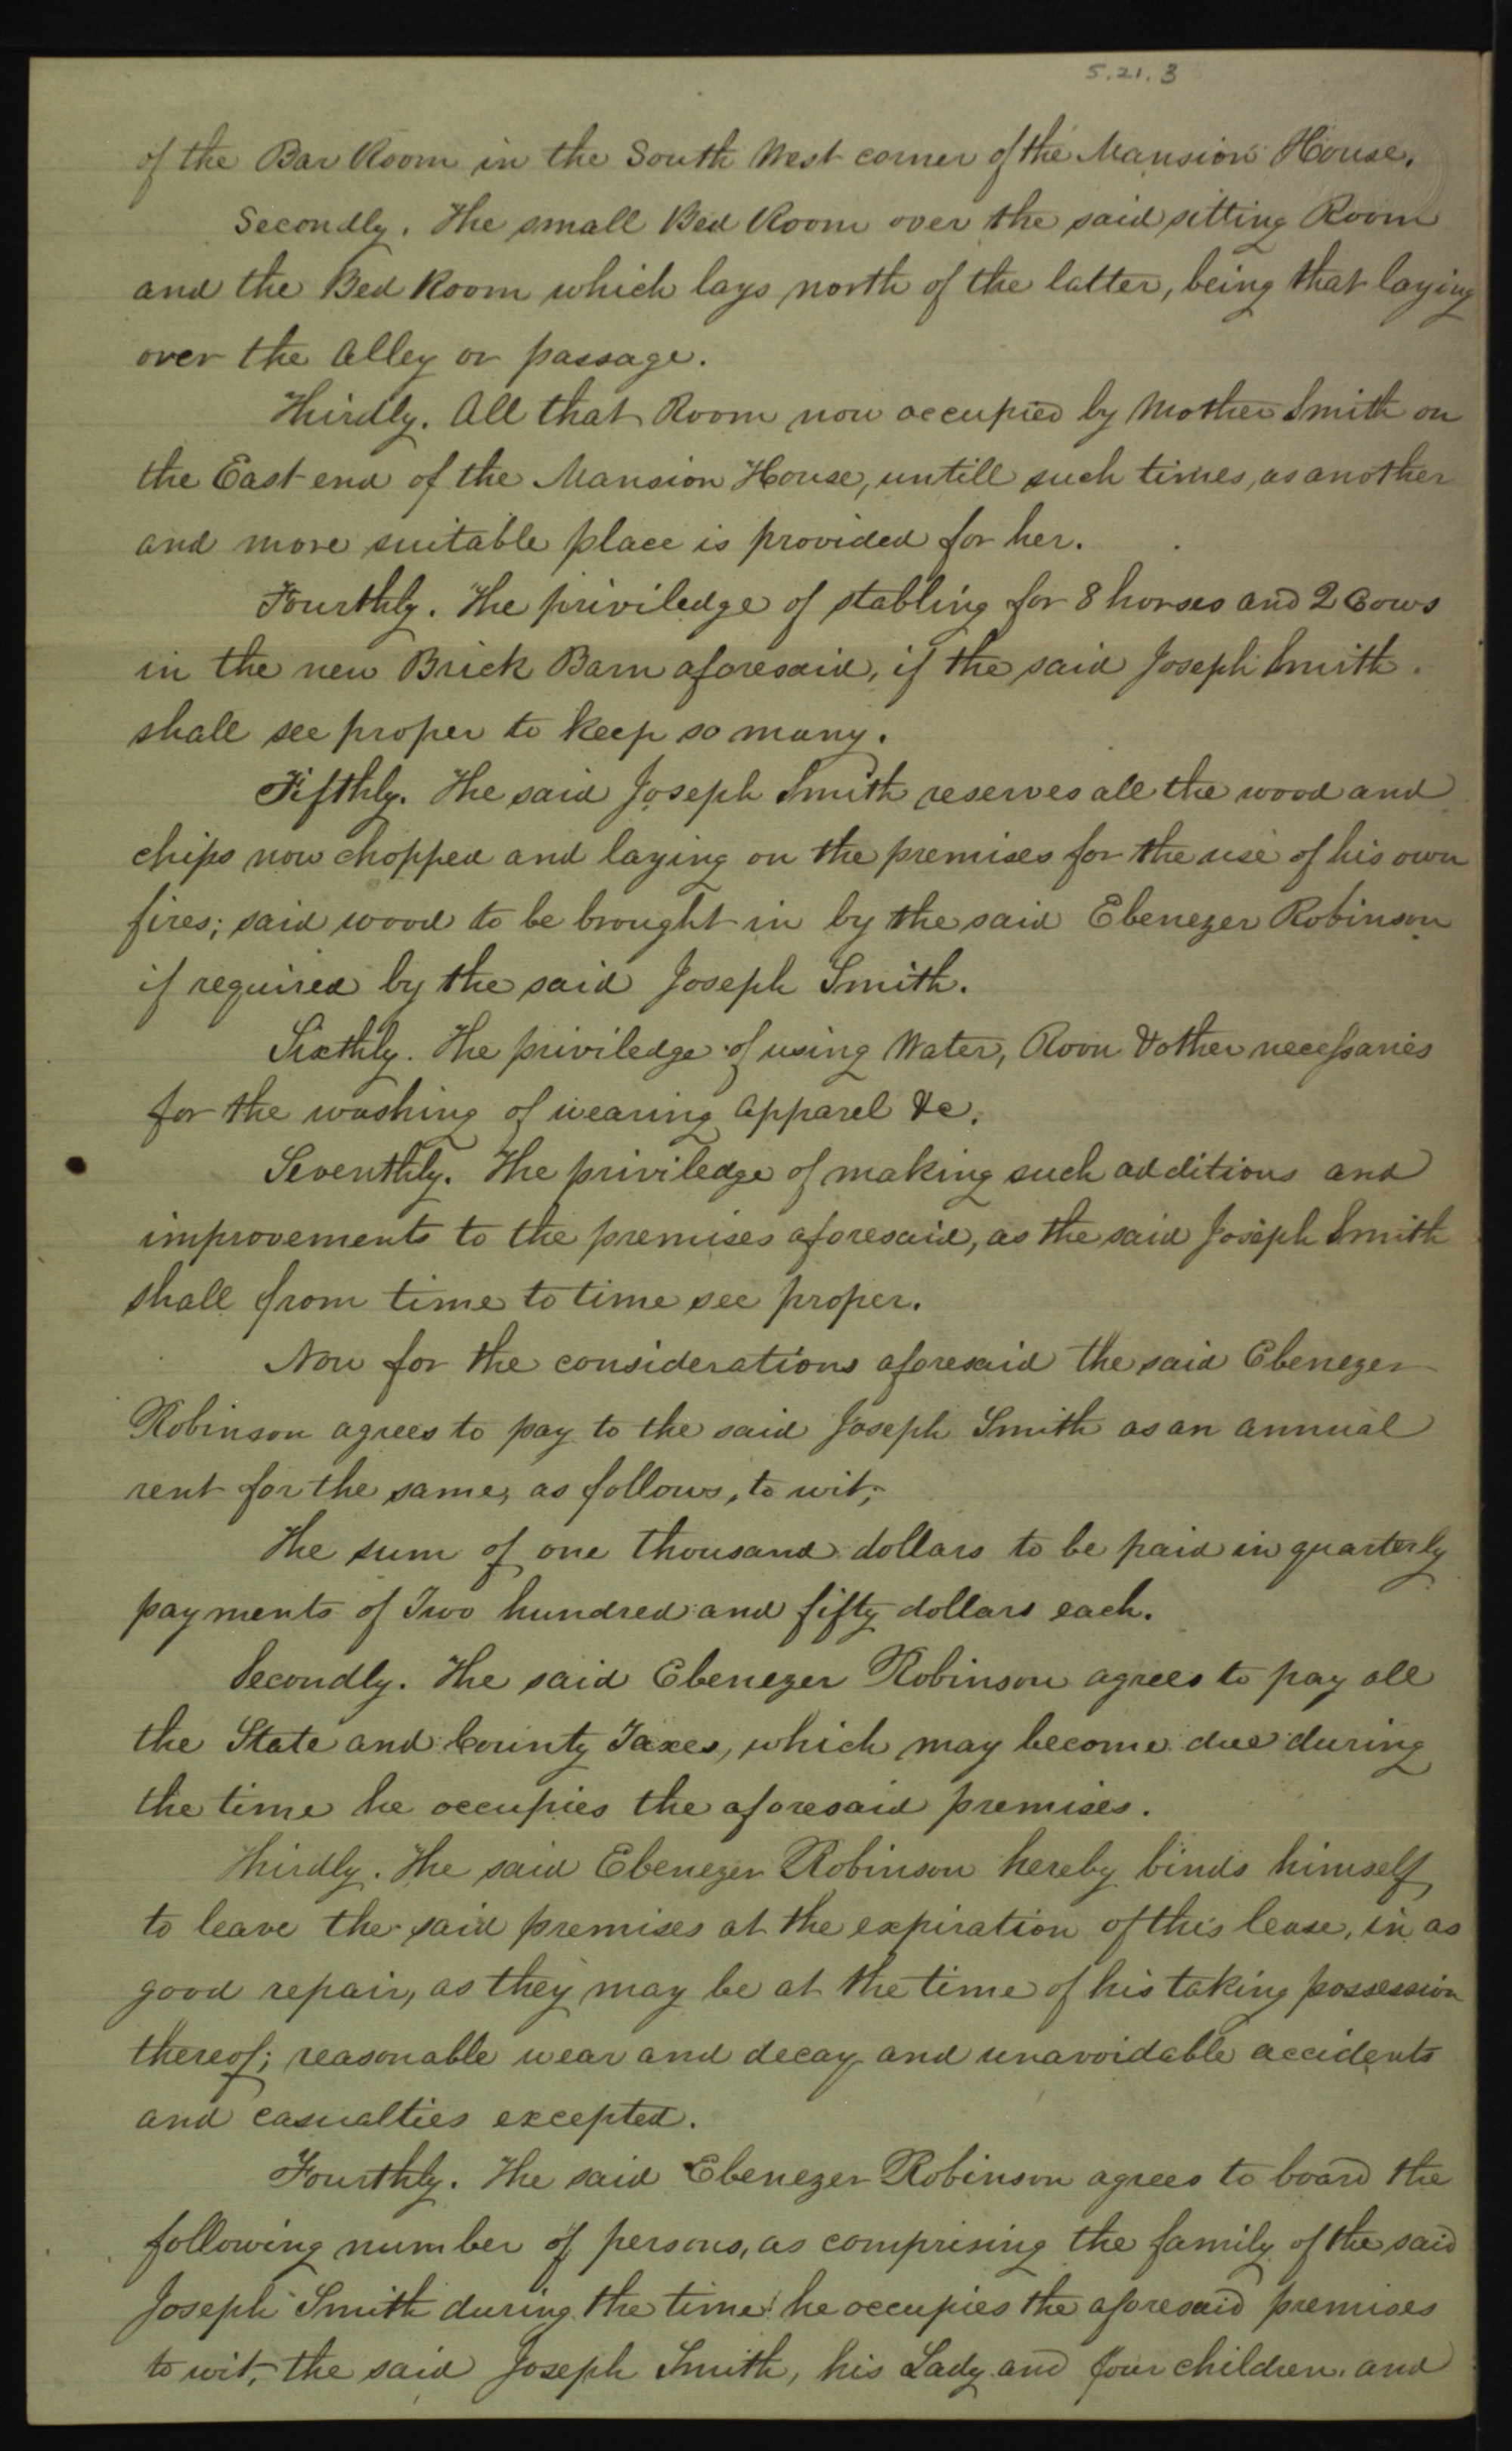 5.21.3
of the Bar Room in the South West corner of the Mansion House.
Secondly. The small Bed Room over the said sitting Room
and the Bed Room which lays north of the latter, being that laying
over the Alley or passage.
Thirdly. All that Room now occupied by Mother Smith on
the East end of the Mansion House, untill such times, as another
and more suitable place is provided for her.
Fourthly. The priviledge of stabling for 8 horses and 2 Cows
in the new Brick Barn aforesaid, if the said Joseph Smith
shall see proper to keep so many.
Fifthly. The said Joseph Smith reserves all the wood and
chips now chopped and laying on the premises for the use of his own
fires; said wood to be brought in by the said Ebenezer Robinson
if required by the said Joseph Smith.
Sixthly. The priviledge of using Water, Room & other necessaries
for the washing of wearing Apparel &c.
Seventhly. The priviledge of making such additions and
improvements to the premises aforesaid, as the said Joseph Smith
shall from time to time see proper.
Now for the considerations aforesaid the said Ebenezer
Robinson agrees to pay to the said Joseph Smith as an annual
rent for the same, as follows, to wit;
The sum of one thousand dollars to be paid in quarterly
payments of Two hundred and fifty dollars each.
Secondly. The said Ebenezer Robinson agrees to pay all
the State and County Taxes, which may become due during
the time he occupies the aforesaid premises.
Thirdly. The said Ebenezer Robinson hereby binds himself
to leave the said premises at the expiration of this lease, in as
good repair, as they may be at the time of his taking possession
thereof; reasonable wear and decay and unavoidable accidents
and casualties excepted.
Fourthly. The said Ebenezer Robinson agrees to board the
following number of persons, as comprising the family of the said
Joseph Smith during the time he occupies the aforesaid premises
to wit, the said Joseph Smith, his Lady and four children, and